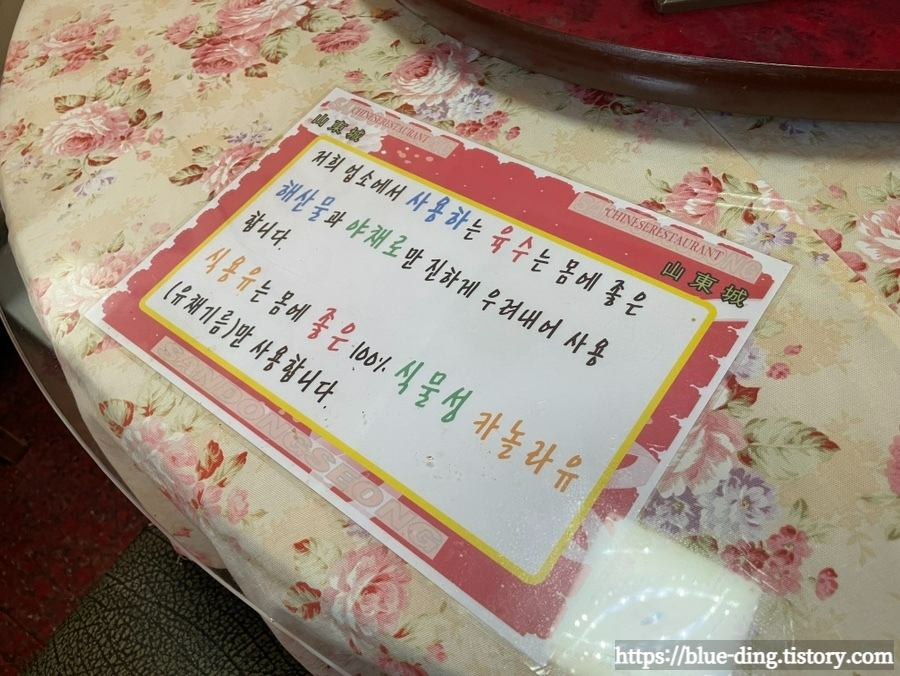 山東城
CHINESERESTAURANT
CHINESERESTAURANT
山東城
저희 업소에서 사용하는 육수는 몸에 좋은
해산물과 야채로만 진하게 우려내어 사용
합니다
식용유는 몸에 좋은 100% 식물성 카놀라유
(유채기름)만 사용합니다.
SANDONGSEONG
https://blue-ding.tistory.com